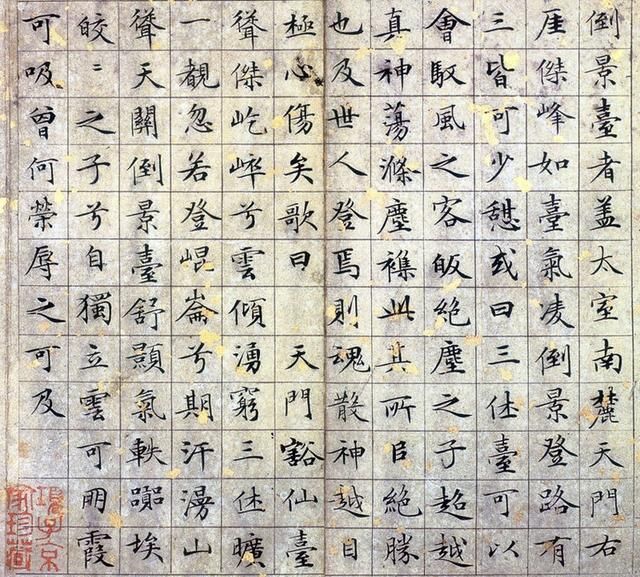 倒景臺者蓋太室南麓天門右
厓傑峰如臺氣凌倒景登路有
三皆可少憩或曰三休臺可以
會馭風之客皈絕塵之子超越
真神蕩滌塵襟此其所㠯絕勝
也及世人登焉則魂散神越目
極心傷矣歌曰 天門豁仙臺
聳傑屹崒兮雲傾湧窮三休曠
一覩忽若登崐崙兮期汗漫山
聳天關倒景臺舒顥氣軼囂埃
皎〻之子兮自獨立雲可朋霞
可吸曾何榮辱之可及
項子京
家珍藏